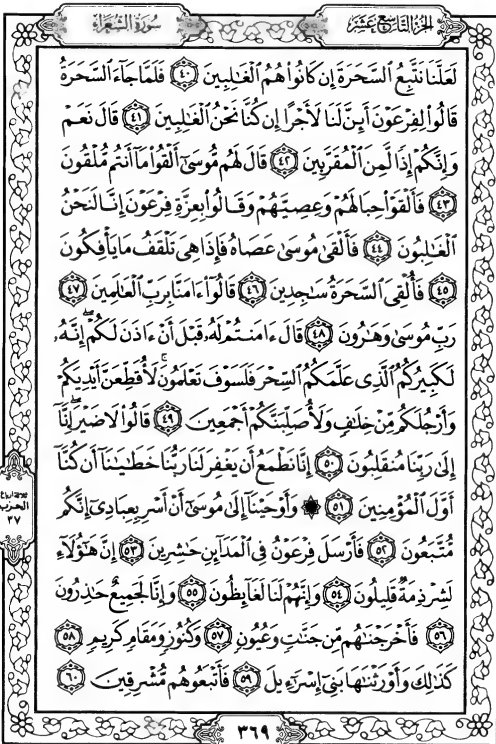 سُورَةُ الشُّعَرَاءِ
الجُزءُ التَّاسِعَ عَشَرَ
لَعَلَّنَا نَتَّبِعُ ٱلسَّحَرَةَ إِن كَانُوا۟ هُمُ ٱلْغَـٰلِبِينَ ٤٠ فَلَمَّا جَآءَ ٱلسَّحَرَةُ
قَالُوا۟ لِفِرْعَوْنَ أَئِنَّ لَنَا لَأَجْرًا إِن كُنَّا نَحْنُ ٱلْغَـٰلِبِينَ ٤١ قَالَ نَعَمْ
وَإِنَّكُمْ إِذًا لَّمِنَ ٱلْمُقَرَّبِينَ ٤٢ قَالَ لَهُم مُّوسَىٰٓ أَلْقُوا۟ مَآ أَنتُم مُّلْقُونَ
٤٣ فَأَلْقَوْا۟ حِبَالَهُمْ وَعِصِيَّهُمْ وَقَالُوا۟ بِعِزَّةِ فِرْعَوْنَ إِنَّا لَنَحْنُ
ٱلْغَـٰلِبُونَ ٤٤ فَأَلْقَىٰ مُوسَىٰ عَصَاهُ فَإِذَا هِىَ تَلْقَفُ مَا يَأْفِكُونَ
٤٥ فَأُلْقِىَ ٱلسَّحَرَةُ سَـٰجِدِينَ ٤٦ قَالُوٓا۟ ءَامَنَّا بِرَبِّ ٱلْعَـٰلَمِينَ ٤٧
رَبِّ مُوسَىٰ وَهَـٰرُونَ ٤٨ قَالَ ءَامَنتُمْ لَهُۥ قَبْلَ أَنْ ءَاذَنَ لَكُمْ ۖ إِنَّهُۥ
لَكَبِيرُكُمُ ٱلَّذِى عَلَّمَكُمُ ٱلسِّحْرَ فَلَسَوْفَ تَعْلَمُونَ ۚ لَأُقَطِّعَنَّ أَيْدِيَكُمْ
وَأَرْجُلَكُم مِّنْ خِلَـٰفٍ وَلَأُصَلِّبَنَّكُمْ أَجْمَعِينَ ٤٩ قَالُوا۟ لَا ضَيْرَ ۖ إِنَّآ
إِلَىٰ رَبِّنَا مُنقَلِبُونَ ٥٠ إِنَّا نَطْمَعُ أَن يَغْفِرَ لَنَا رَبُّنَا خَطَـٰيَـٰنَآ أَن كُنَّآ
أَوَّلَ ٱلْمُؤْمِنِينَ ٥١ ۞ وَأَوْحَيْنَآ إِلَىٰ مُوسَىٰٓ أَنْ أَسْرِ بِعِبَادِىٓ إِنَّكُم
مُّتَّبَعُونَ ٥٢ فَأَرْسَلَ فِرْعَوْنُ فِى ٱلْمَدَآئِنِ حَـٰشِرِينَ ٥٣ إِنَّ هَـٰٓؤُلَآءِ
لَشِرْذِمَةٌ قَلِيلُونَ ٥٤ وَإِنَّهُمْ لَنَا لَغَآئِظُونَ ٥٥ وَإِنَّا لَجَمِيعٌ حَـٰذِرُونَ
٥٦ فَأَخْرَجْنَـٰهُم مِّن جَنَّـٰتٍ وَعُيُونٍ ٥٧ وَكُنُوزٍ وَمَقَامٍ كَرِيمٍ ٥٨
كَذَٰلِكَ وَأَوْرَثْنَـٰهَا بَنِىٓ إِسْرَٰٓءِيلَ ٥٩ فَأَتْبَعُوهُم مُّشْرِقِينَ ٦٠
ثلاثة أرباع
الحزب
٣٧
٣٦٩